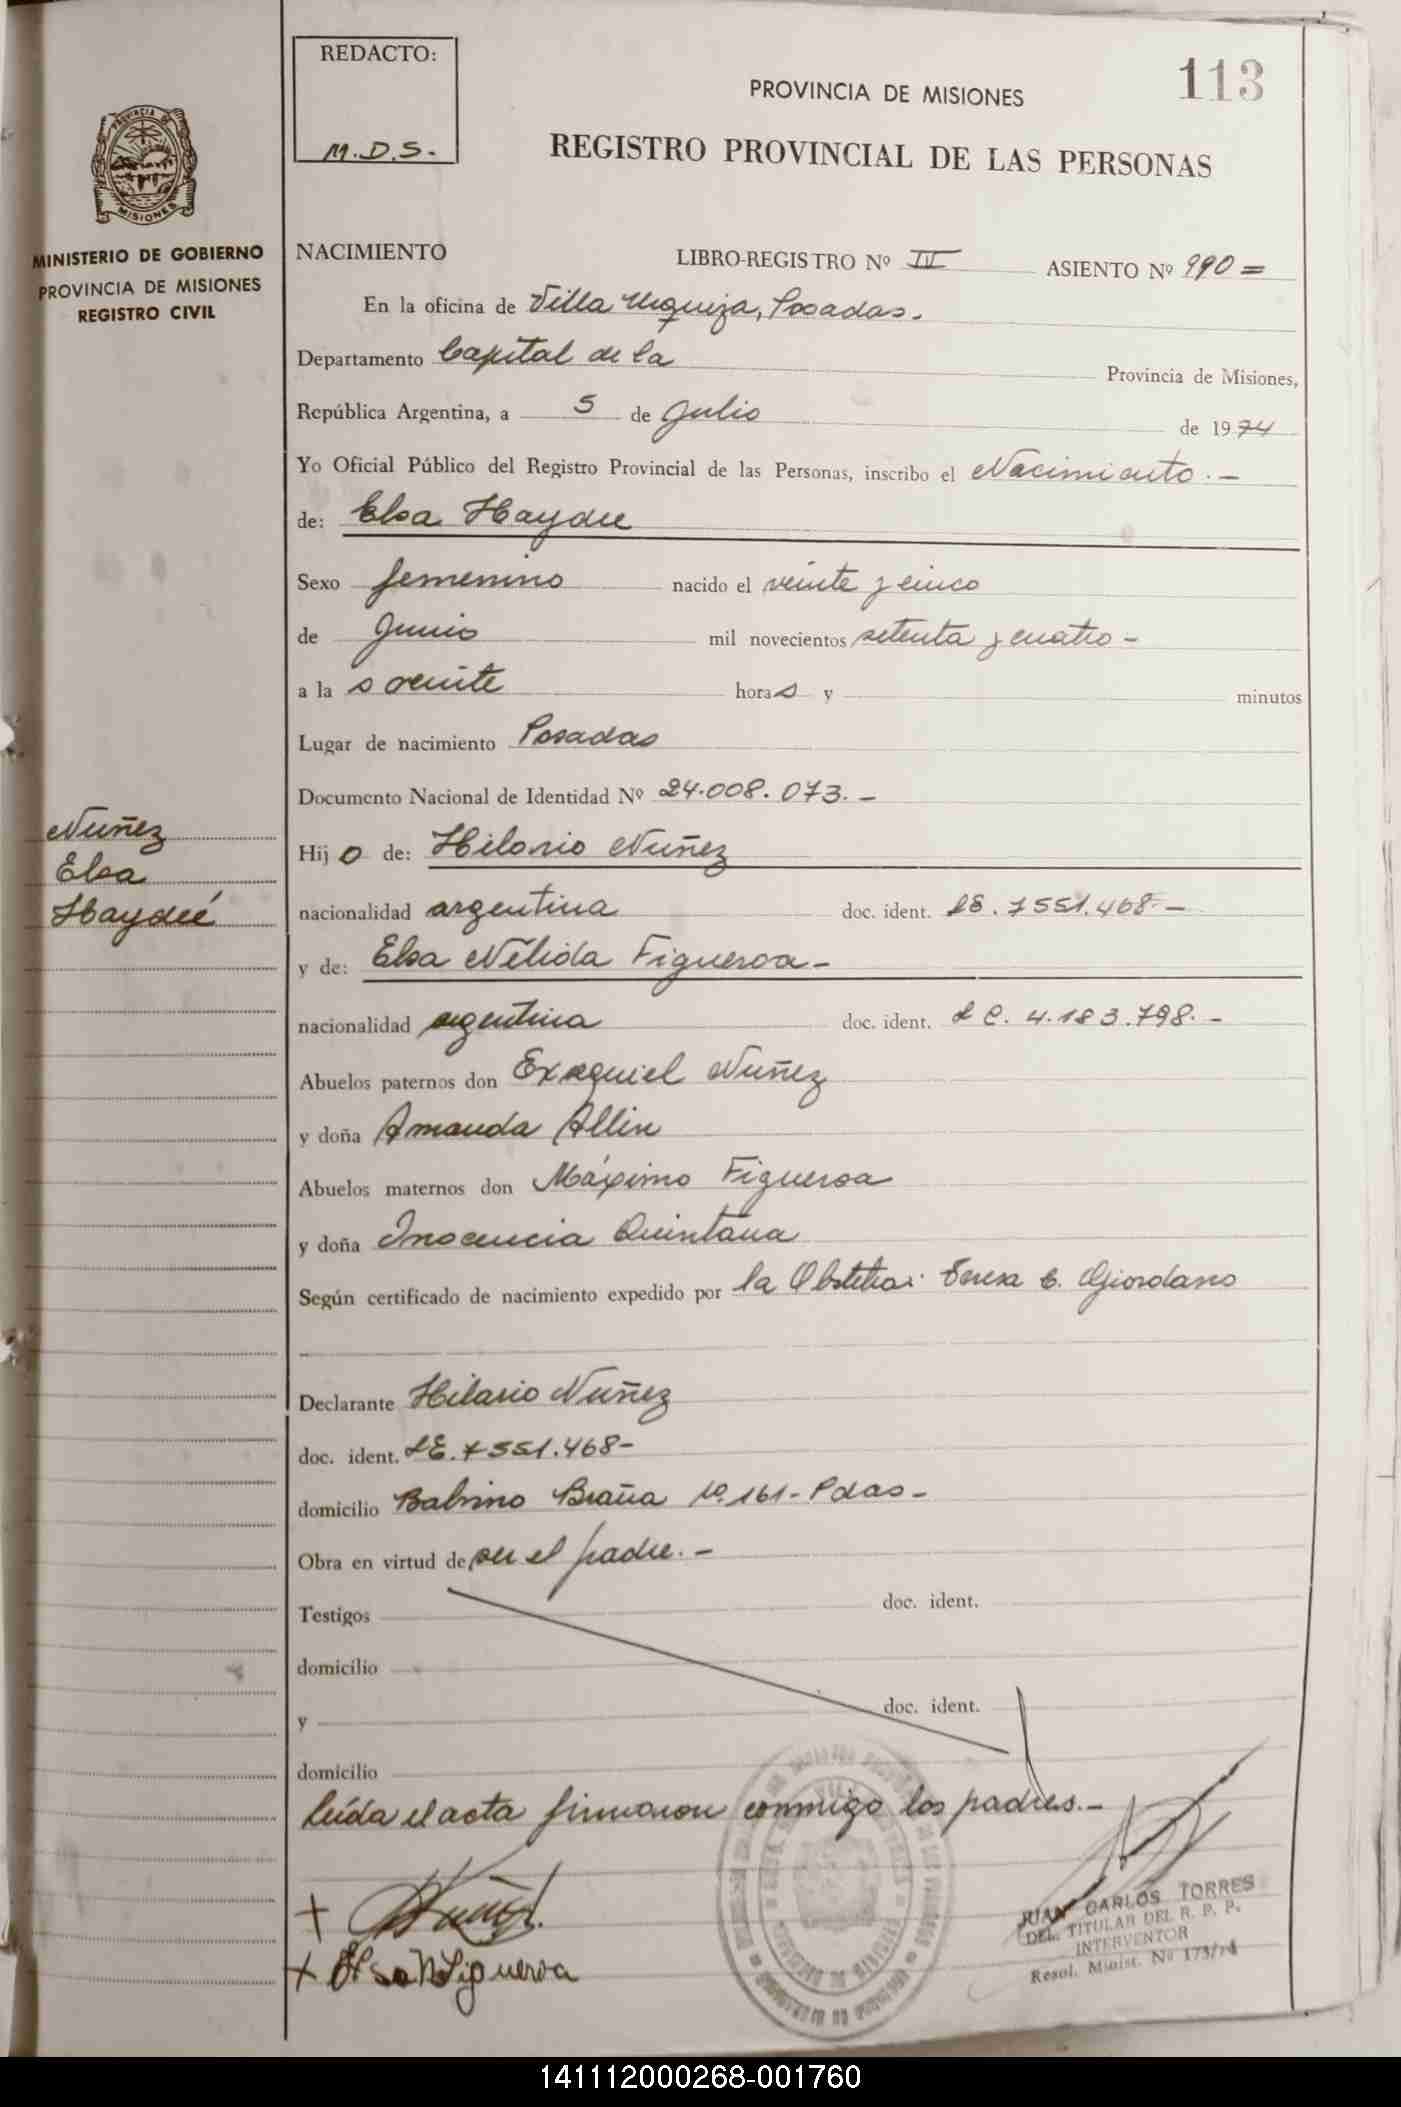 REDACTO:
M.D.S.-
113
PROVINCIA DE MISIONES
REGISTRO PROVINCIAL DE LAS PERSONAS
MISIONES
MINISTERIO DE GOBIERNO
PROVINCIA DE MISIONES
REGISTRO CIVIL
NACIMIENTO LIBRO-REGISTRO Nº IV ASIENTO Nº 990=
En la oficina de Villa Urquiza, Posadas.
Departamento Capital de la Provincia de Misiones,
República Argentina, a 5 de Julio de 1974
Yo Oficial Público del Registro Provincial de las Personas, inscribo el Nacimiento.-
de: Elsa Haydee
Sexo femenino nacido el veinte y cinco
de Junio mil novecientos setenta y cuatro-
a la s veinte hora s y minutos
Lugar de nacimiento Posadas
Documento Nacional de Identidad Nº 24.008.073.-
Nuñez
Elsa
Haydeé
Hij o de: Hilario Nuñez
nacionalidad argentina doc. ident. LE. 7551.468-
y de: Elsa Nélida Figueroa-
nacionalidad argentina doc. ident. L C. 4.183.798.-
Abuelos paternos don Exequiel Nuñez
y doña Amanda Allin
Abuelos maternos don Máximo Figueroa
y doña Inocencia Quintana
Según certificado de nacimiento expedido por la Obstetra: Teresa C. Giordano
Declarante Hilario Nuñez
doc. ident. LE. 7551.468-
domicilio Braña 161- Pdas-
Obra en virtud de ser el padre.-
Testigos doc. ident.
domicilio
y doc. ident.
domicilio
Leída el acta firmaron conmigo los padres.-
+ Nuñez
+ Elsa N Figueroa
JUAN CARLOS TORRES
DEL. TITULAR DEL R. P. P.
INTERVENTOR
Resol. Minist. Nº 173/74
141112000268-001760